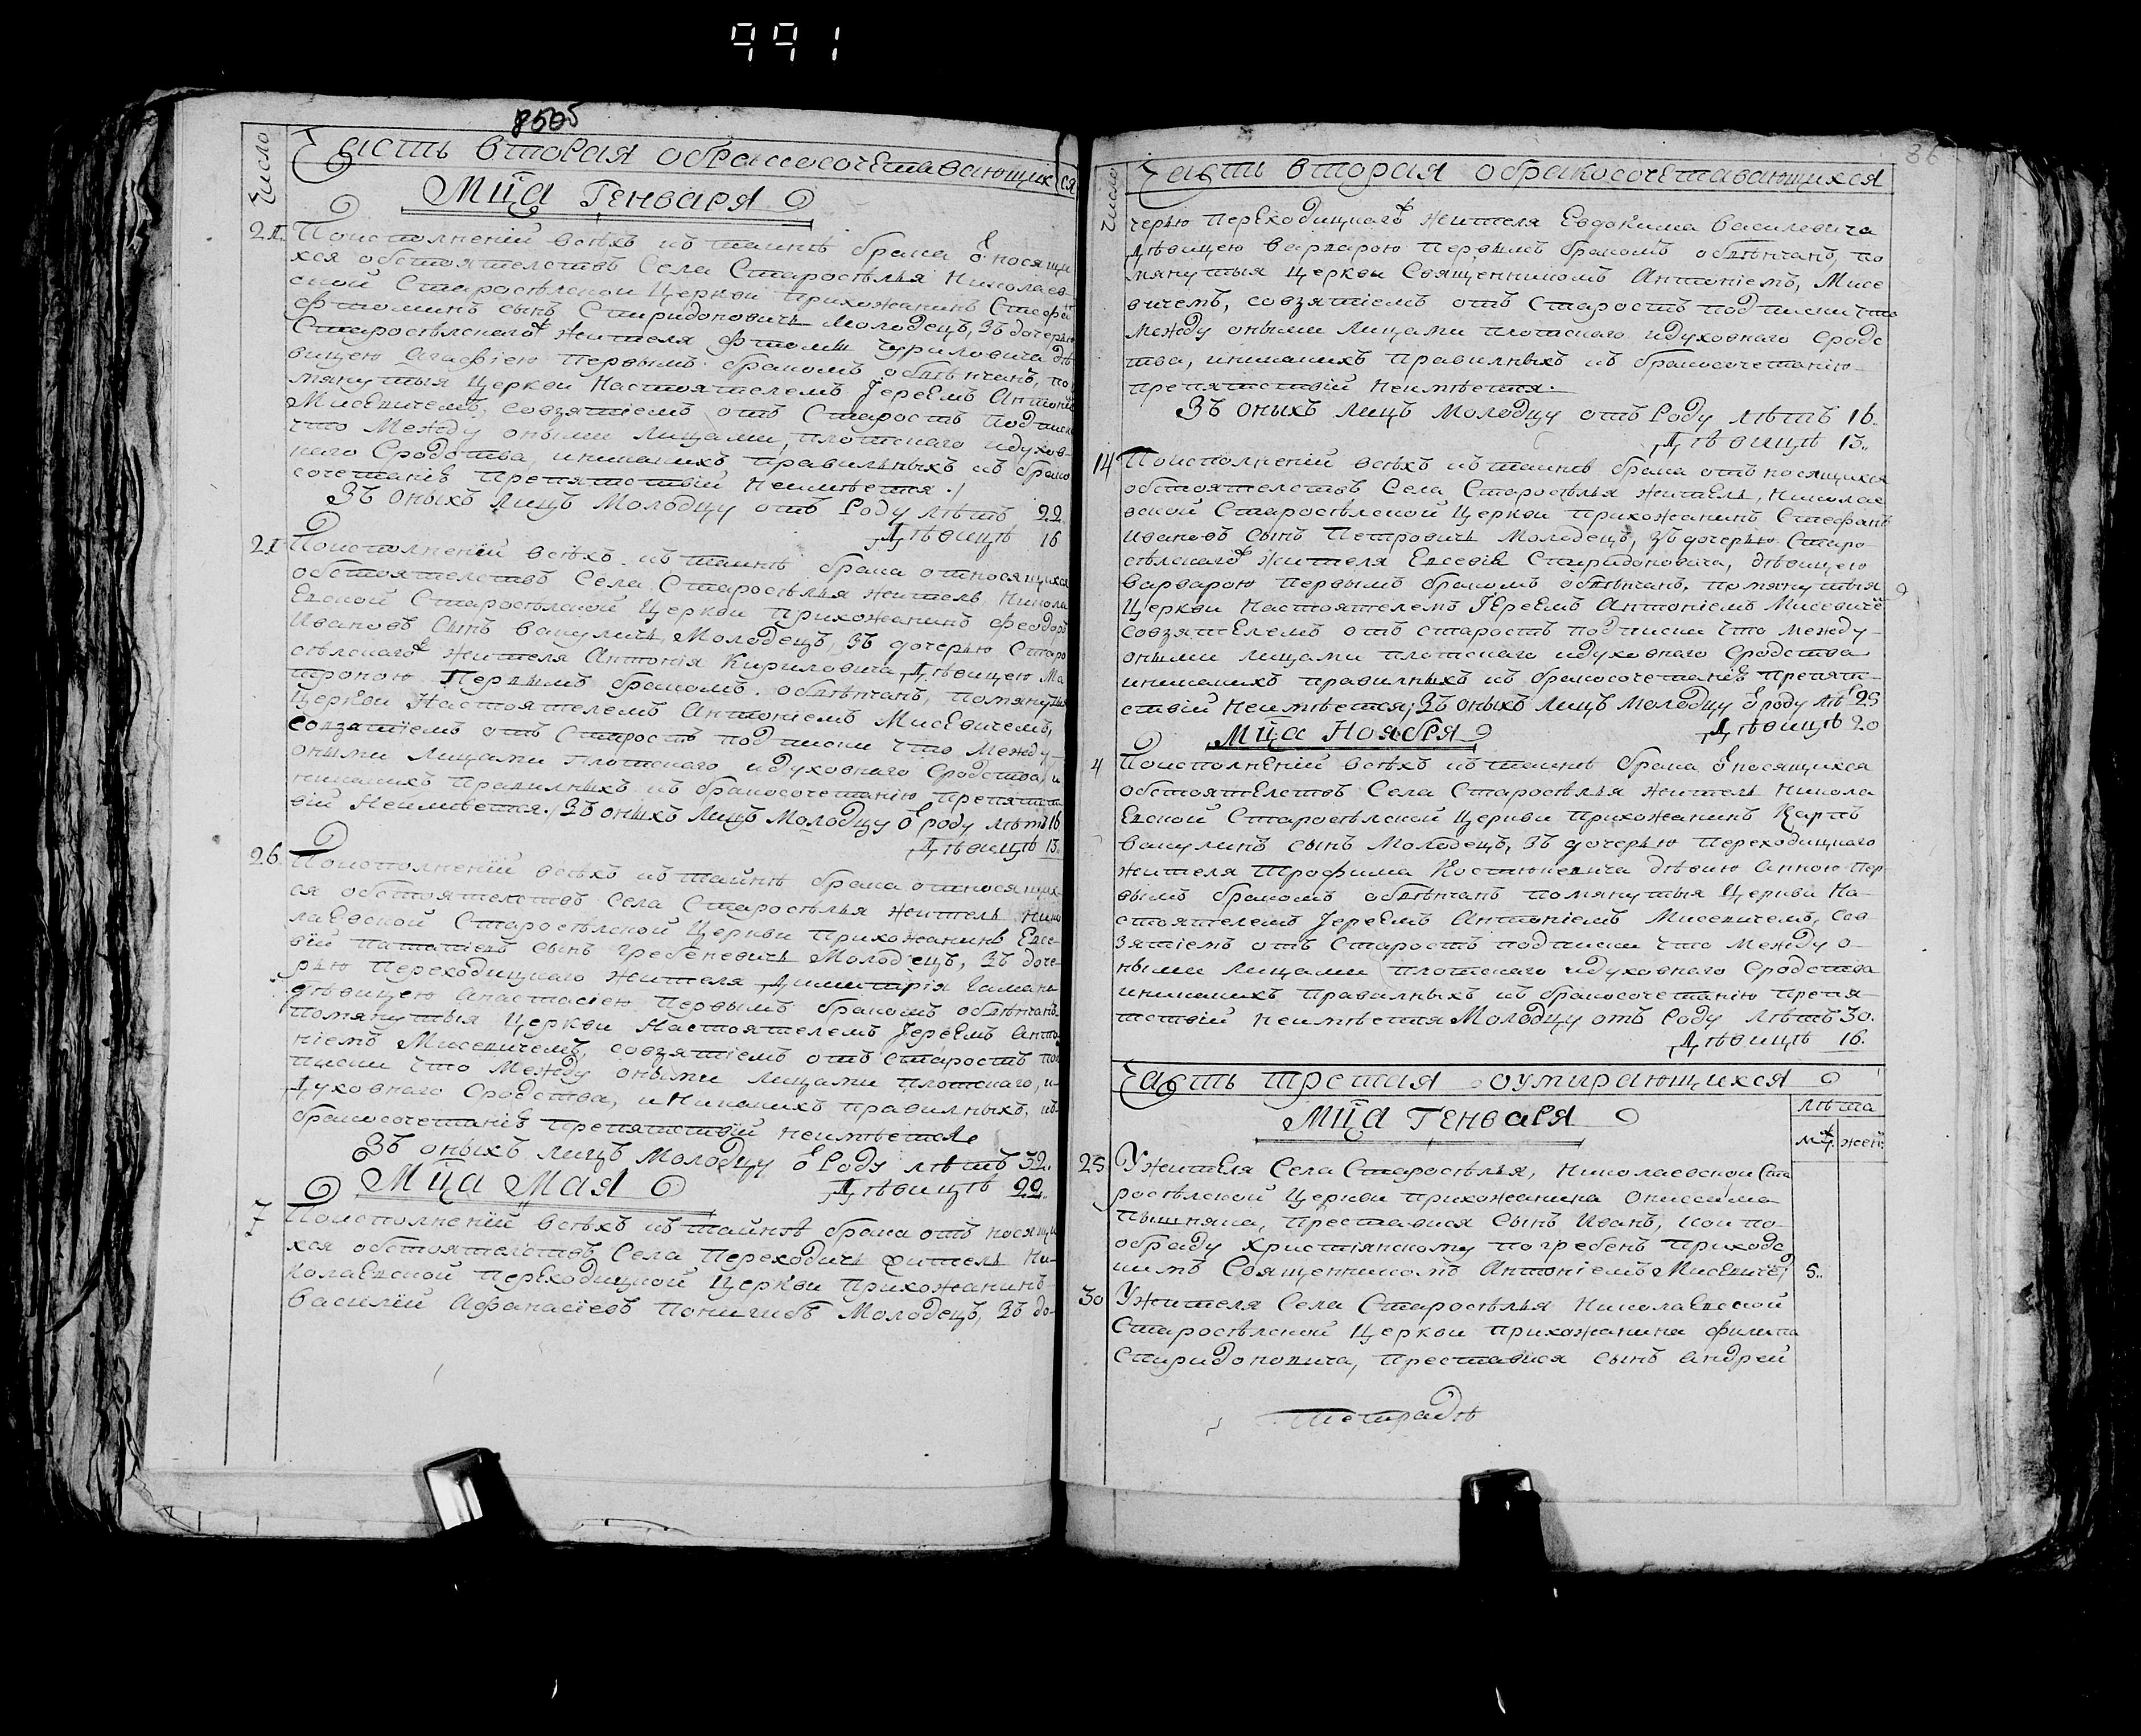 991
8505
Число
Часть вторая обракосочетавающихся
Мца Генваря
21. Поисполнений всѣхъ къ таинѣ брака ѿносящи
хся обстоятелствъ Села Староселья Николаев
ской Старосѣлской Церкви прихожанинъ Стефан
Фтоминъ сынъ Спиридоновичь Молодецъ, Зъ дочерью
Старосѣлскаго Жителя Фтомы Чуриловича дѣ
вицею Агафіею первымъ бракомъ обвѣнчанъ, по
мянутыя Церкви Настоятелемъ Іереемъ Антоніе
Мисевичемъ, совзятіемъ отъ Старость подписки
что Между оными Лицами, плотскаго идухов
наго Сродства, иникакихъ правильныхъ къ брако
сочетанію препятствій Неимѣется.
Зъ оныхъ лицъ Молодцу отъ Роду лѣтъ 22.
Дѣвицѣ 16
21 Поисполненій всѣхъ къ таинѣ брака относящихся
обстоятелствъ Села Старосѣлья житель Никола
Евской Старосѣлской Церкви прихожанинъ Феодоръ
Ивановъ сынъ Вакуличь, Молодецъ, Зъ дочерью Старо
сѣлскаго Жителя Антонія Кириловича Дѣвицею Ма
троною первымъ бракомъ обвѣнчанъ, помянутыя
Церкви Настоятелемъ Антоніемъ Мисевичемъ,
Совзятіемъ отъ Старость подписки что Между
оными Лицами плотскаго идуховнаго Сродства, и
никакихъ правилныхъ къ бракосочетанію препятст
вій Неимѣется. Зъ оныхъ Лицъ Молодцу ѿ роду лѣтъ 16
Дѣвицѣ 13.
26. Поисполненій всѣхъ къ тайнѣ брака относящих
ся обстоятелствъ Села Старосѣлья житель Нико
лаевской Старосѣлской Церкви прихожанинъ Евсе
вій сынъ Гребеневичь Молодецъ, Зъ доче
рью переходицкаго жителя Димитрія
дѣвицею Анастасіею первымъ бракомъ обвѣнчанъ
помянутыя Церкви Настоятелемъ Іереемъ Анто
ніемъ Мисевичемъ, совзятіемъ отъ старость под
писки что Между оными лицами плотскаго, и
Духовнаго Сродства, иНикакихъ правилныхъ, къ
бракосочетанію препятствій неимѣется
Зъ оныхъ лицъ Молодцу ѿ Роду лѣтъ 32.
Мца Мая
Дѣвицѣ 22.
7 Поисполненій всѣхъ къ тайнѣ брака отъ носящи
хся обстоятелствъ Села переходичь житель Ни
колаевской переходицкой Церкви прихожанинъ
Василій Афанасіевъ Молодецъ, Зъ до-
36
Число
Часть вторая обракосочетавающихся
черью переходицкаго жителя Евдокима Василевича
дѣвицею Варварою первымъ бракомъ обвѣнчанъ, по
мянутыя Церкви Священникомъ Антоніемъ, Мисе
вичемъ, совзятіемъ отъ Старость подписки что
между оными Лицами плотскаго идуховнаго Сродс
тва, иникакихъ правилныхъ къ бракосочетанію
препятствій неимѣется.
Зъ оныхъ лицъ Молодцу отъ Роду лѣтъ 16.
Дѣвицѣ 13.
14 Поисполненій всѣхъ къ таинѣ брака отъ носящихся
обстоятелствъ Села Старосѣлья житель, Николае
вской Старосѣлской Церкви прихожанинъ Стефанъ
Ивановъ сынъ Петровичь Молодецъ, Зъ дочерью Старо
сѣлскаго Жителя Евсевія Спиридоновича, дѣвицею
Варварою первымъ бракомъ обвѣнчанъ, помянутыя
Церкви Настоятелемъ Іереемъ Антоніемъ Мисевиче
совзятелемъ отъ старость подписки что между
оными лицами плотскаго идуховнаго Сродства
иникакихъ правилныхъ къ бракосочетанію препят
ствій неимѣется; Зъ оныхъ Лицъ Молодцу ѿ роду лѣ 25
Мца Ноября
Дѣвицѣ 20
4 Поисполненій всѣхъ къ таинѣ брака ѿносящихся
обстоятелствъ Села Старосѣлья житель Никола
Евской Старосѣлской Церкви прихожанинъ Карпъ
Вакулинъ сынъ Молодецъ, Зъ дочерью переходицкаго
жителя Трофима Костюкевича дѣвою Анною пер
вымъ бракомъ обвѣнчанъ помянутыя Церкви На-
стоятелемъ Іереемъ Антоніемъ Мисевичемъ, сов
зятіемъ отъ Старость подписки что между о-
ными лицами плотскаго идуховнаго Сродства
иникакихъ правилныхъ къ бракосочетанію препя
тствій неимѣется Молодцу отъ Роду лѣтъ 30.
Дѣвицѣ 16.
Часть третая оумирающихся
Мца Генваря
лѣта
муж жен
25 Ужителя Села Старосѣлья, Николаевской Ста
росѣлской Церкви прихожанина Онисима
Пышняка, преставися сынъ Иванъ, кои по
обряду христіянскому погребенъ приходс
кимъ Священникомъ Антоніемъ Мисевиче 5.
30 Ужителя Села Старосѣлья Николаевской
Старосѣлской Церкви прихожанина Филипа
Спиридоновича, преставися сынъ Андрей